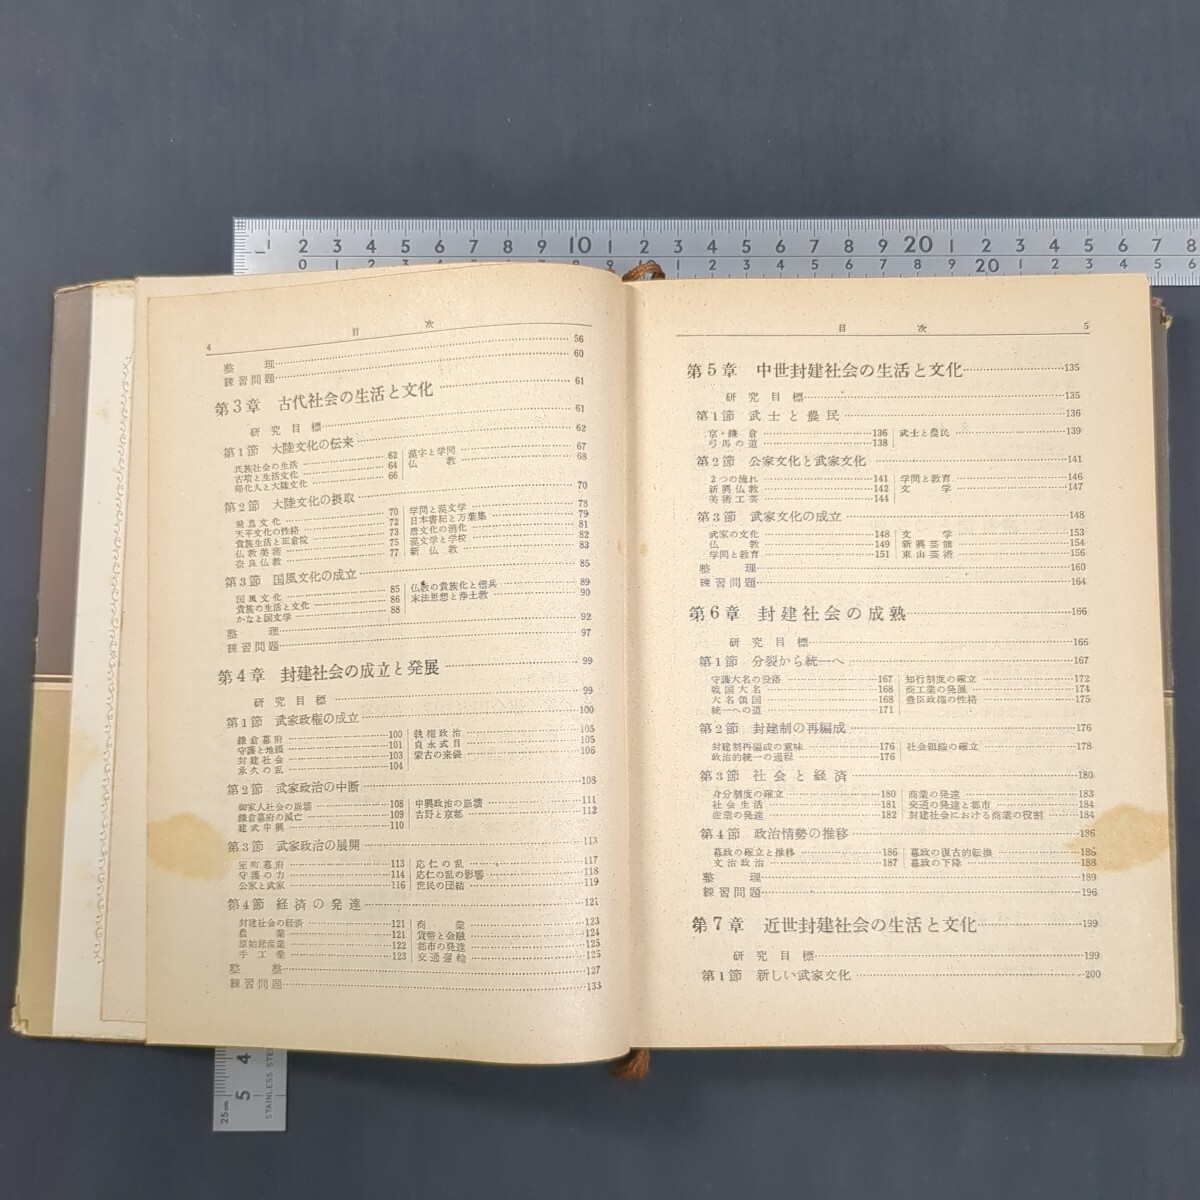 1 2 3 4 5 6 7 8 9 10 1 2 3 4 5 6 7 8 9 20 1 2 3 4 5 6 7 8
4 目 次
整 理 56
練習問題 60
第3章 古代社会の生活と文化 61
研究目標 61
第1節 大陸文化の伝来 62
氏族社会の生活 62
古墳と生活文化 64
帰化人と大陸文化 66
漢字と学問 67
仏 教 68
第2節 大陸文化の摂取 70
飛鳥文化 70
天平文化の性格 72
貴族生活と正倉院 73
仏教美術 75
奈良仏教 77
学問と漢文学 78
日本書紀と万葉集 79
唐文化の消化 81
漢文学と学校 82
新仏教 83
第3節 国風文化の成立 85
国風文化 85
貴族の生活と文化 86
かなと国文学 88
仏教の貴族化と僧兵 89
末法思想と浄土教 90
整 理 92
練習問題 97
第4章 封建社会の成立と発展 99
研究目標 99
第1節 武家政権の成立 100
鎌倉幕府 100
守護と地頭 101
封建社会 103
承久の乱 104
執権政治 105
貞永式目 105
蒙古の来襲 106
第2節 武家政治の中断 108
御家人社会の崩壊 108
鎌倉幕府の滅亡 109
建武中興 110
中興政治の崩壊 111
吉野と京都 112
第3節 武家政治の展開 113
室町幕府 113
守護の力 114
公家と武家 116
応仁の乱 117
応仁の乱の影響 118
世民の団結 119
第4節 経済の発達 121
封建社会の経済 121
農 業 121
原始経産業 122
手工業 123
商 業 123
貨幣と金融 124
都市の発達 125
交通運輸 125
整 整 127
練習問題 133
目 次 5
第5章 中世封建社会の生活と文化 135
研究目標 135
第1節 武士と農民 136
京・鎌倉 136
弓馬の道 138
武士と農民 139
第2節 公家文化と武家文化 141
2つの流れ 141
新興仏教 142
美術工芸 144
学問と教育 146
文 学 147
第3節 武家文化の成立 148
武家の文化 148
仏 教 149
学問と教育 151
文 学 153
新興芸能 154
東山芸術 156
整 理 160
練習問題 164
第6章 封建社会の成熟 166
研究目標 166
第1節 分裂から統一へ 167
守護大名の没落 167
戦国大名 168
大名領国 168
統一への道 171
知行制度の確立 172
商工業の発展 174
豊臣政権の性格 175
第2節 封建制の再編成 176
封建制再編成の意味 176
政治的統一の過程 176
社会組織の確立 178
第3節 社会と経済 180
身分制度の確立 180
社会生活 181
産業の発達 182
商業の発達 183
交通の発達と都市 184
封建社会における商業の役割 184
第4節 政治情勢の推移 186
幕政の確立と推移 186
文治政治 187
幕政の復古的転換 186
幕政の下降 188
整 理 189
練習問題 196
第7章 近世封建社会の生活と文化 199
研究目標 199
第1節 新しい武家文化 200
4 5
25cm
STAINLESS STE